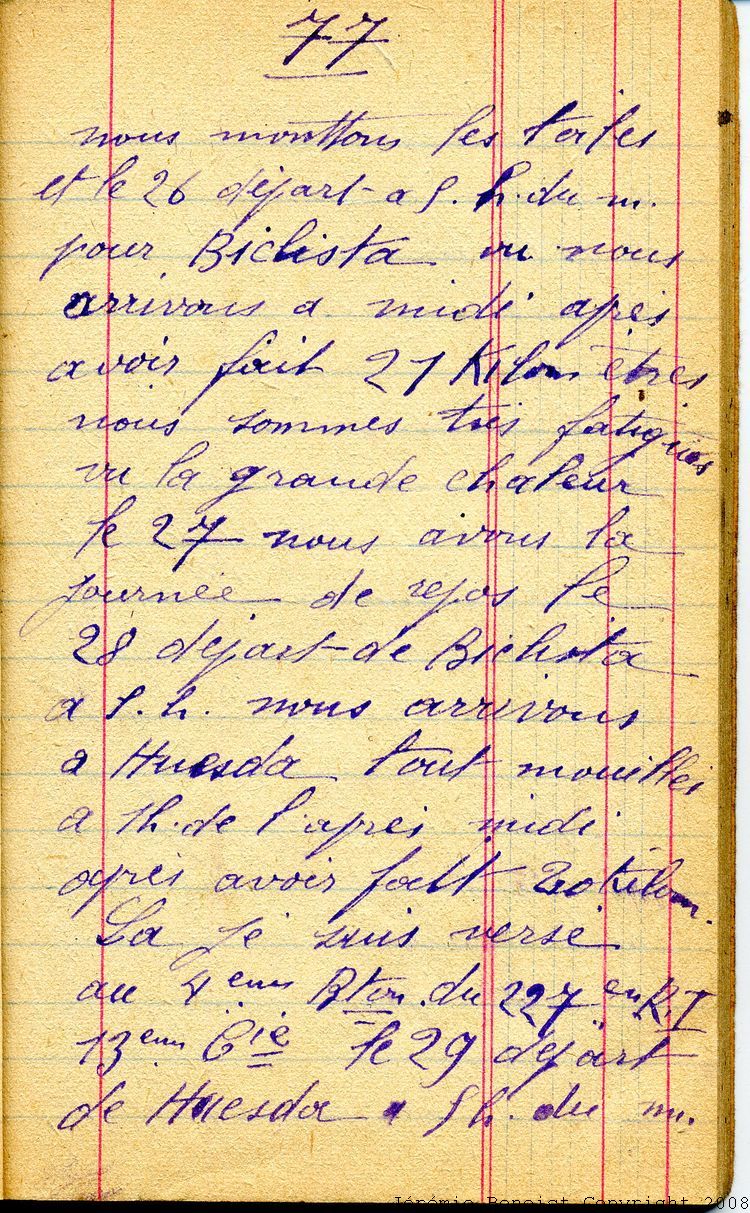 77
nous monttons les toiles
et le 26 départ a 5. h. du m.
pour Biclista ou nous
arrivons a midi après
avoir fait 21 Kilomètres
nous sommes très fatigués
vu la grande chaleur
le 27 nous avons la
journée de repos le
28 départ de Biclista
a 5. h. nous arrivons
a Huesda tout mouillés
a 1h. de l'après midi
après avoir fait 20 Kilom.
La je suis versé
au 4eme Bton. du 227 em R.I
13eme Cie le 29 départ
de Huesda a 5 h. du m.
Jérémie Benoist Copyright 2008